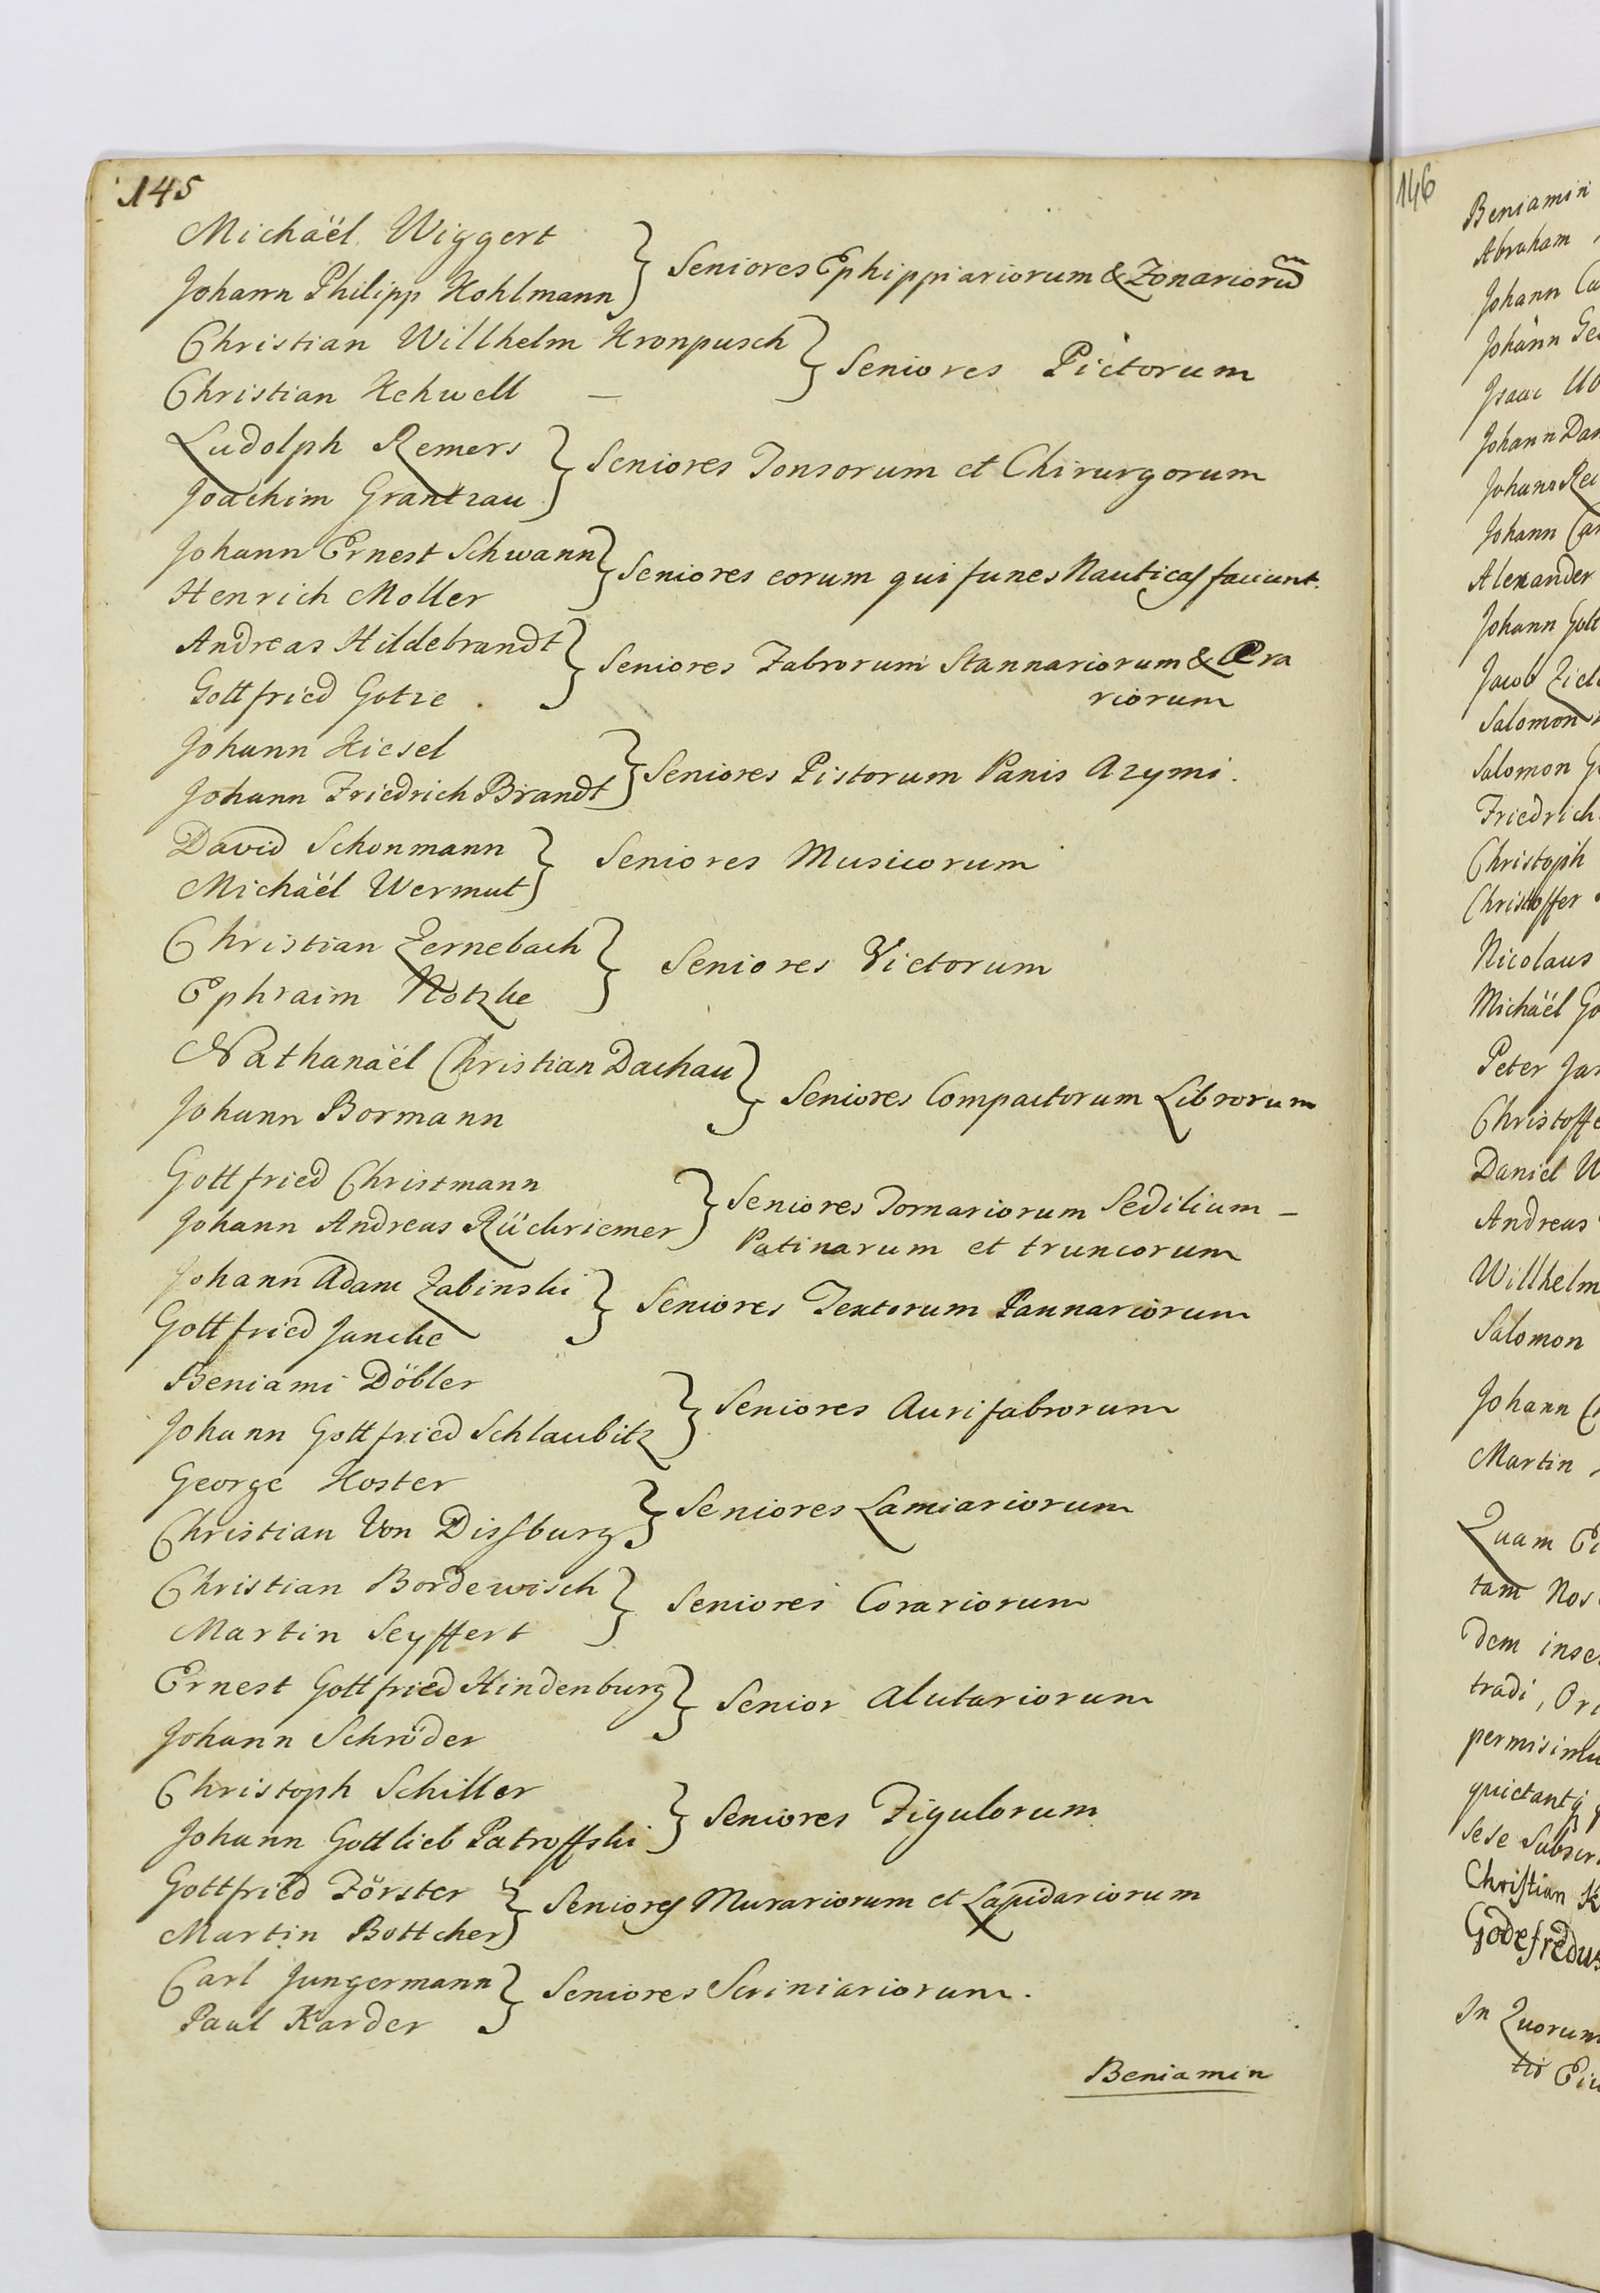 145
Michäël Wiggert
Johann Philipp Kohlmann } Seniores Ephippiariorum & Zonariorũ
Christian Willhelm Kronpusch
Christian Kehwell — } Seniores Pictorum
Ludolph Remers
Joachim Grantzau } Seniores Tonsorum et Chirurgorum
Johann Ernest Schwann
Henrich Moller } Seniores eorum qui funes Nauticas faciunt.
Andreas Hildebrandt
Gottfried Gotze } Seniores Fabrorum Stannariorum & Æra
riorum
Johann Kiesel
Johann Friedrich Brandt } Seniores Pistorum Panis Azymi.
David Schonmann
Michäël Wermut } Seniores Musicorum
Christian Zernebach
Ephraim Notzke } Seniores Victorum
Nathanäël Christian Dachau
Johann Bormann } Seniores Compactorum Librorum
Gottfried Christmann
Johann Andreas Rückriemer } Seniores Tornariorum Sedilium –
Patinarum et truncorum
Johann Adam Zabinski
Gottfried Jancke } Seniores Textorum Pannariorum
Beniami Döbler
Johann Gottfried Schlaubitz } Seniores Aurifabrorum
George Koster
Christian Von Dissburg } Seniores Lamiariorum
Christian Bordewisch
Martin Seyffert } Seniores Corariorum
Ernest Gottfried Hindenburg
Johann Schröder } Senior Alutariorum
Christoph Schiller
Johann Gottlieb Patroffski } Seniores Figulorum
Gottfried Förster
Martin Bottcher } Seniores Murariorum et Lapidariorum
Carl Jungermann
Paul Karder } Seniores Scriniariorum.
Beniamin
146
Beniamin
Abraham
Johann
Johann
Isaac
Johann
Johann
Johann
Alexander
Johann
Jacob
Salomon
Salomon
Friedrich
Christoph
Christoffer
Nicolaus
Michäël
Peter
Daniel
Andreas
Willhelm
Salomon
Johann
Martin
Quam
tam Nos
dem
tradi,
sese
Christian
Godefredus
In Quorum